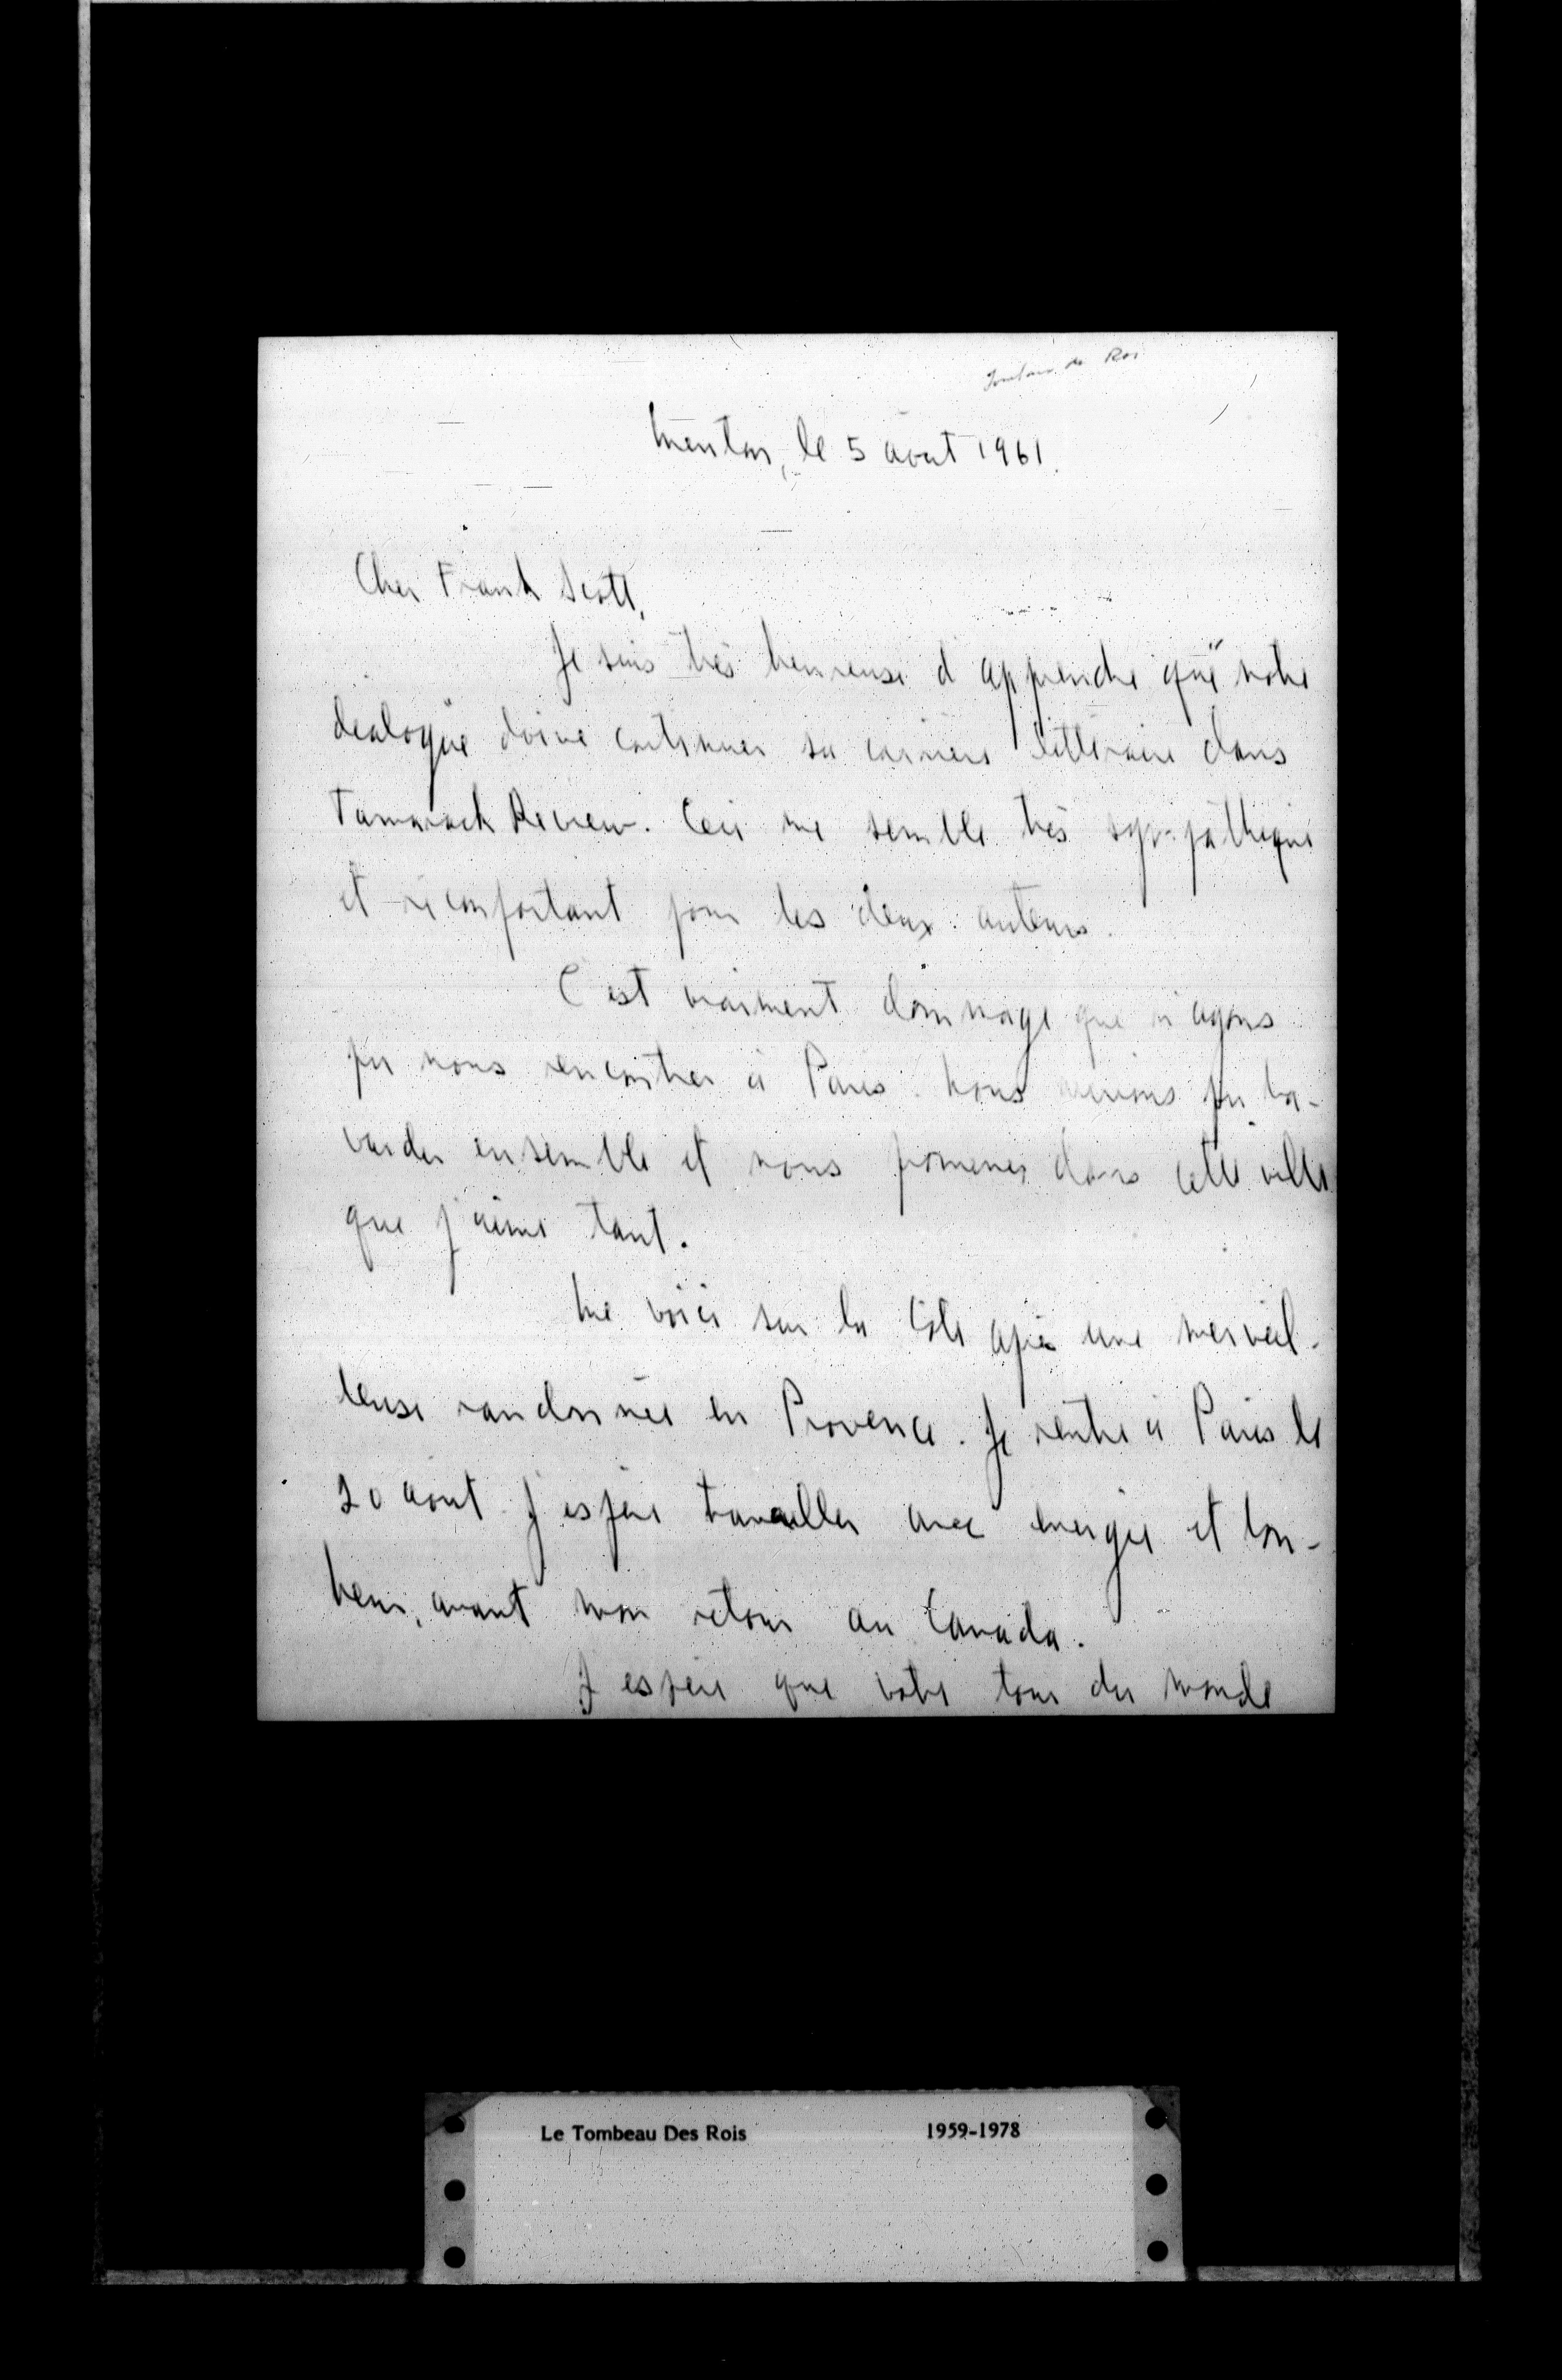 Tombeau des Rois
Menton, le 5 août 1961.
Cher Frank Scott,
Je suis très heureuse d'apprendre que "notre
dialogue" doive continuer sa carrière littéraire dans
Tamarack Review. Ceci me semble très sympathique
et réconfortant pour les deux auteurs.
C'est vraiment dommage que n'ayons
pu nous rencontrer à Paris. Nous aurions pu ba-
varder ensemble et nous promener dans cette ville
que j'aime tant.
Me voici sur la Côte après une merveil-
leuse randonnée en Provence. Je rentre à Paris le
20 août. J'espère travailler avec énergie et bon-
heur, avant mon retour au Canada.
J'espère que votre tour du monde
Le Tombeau Des Rois 1959-1978